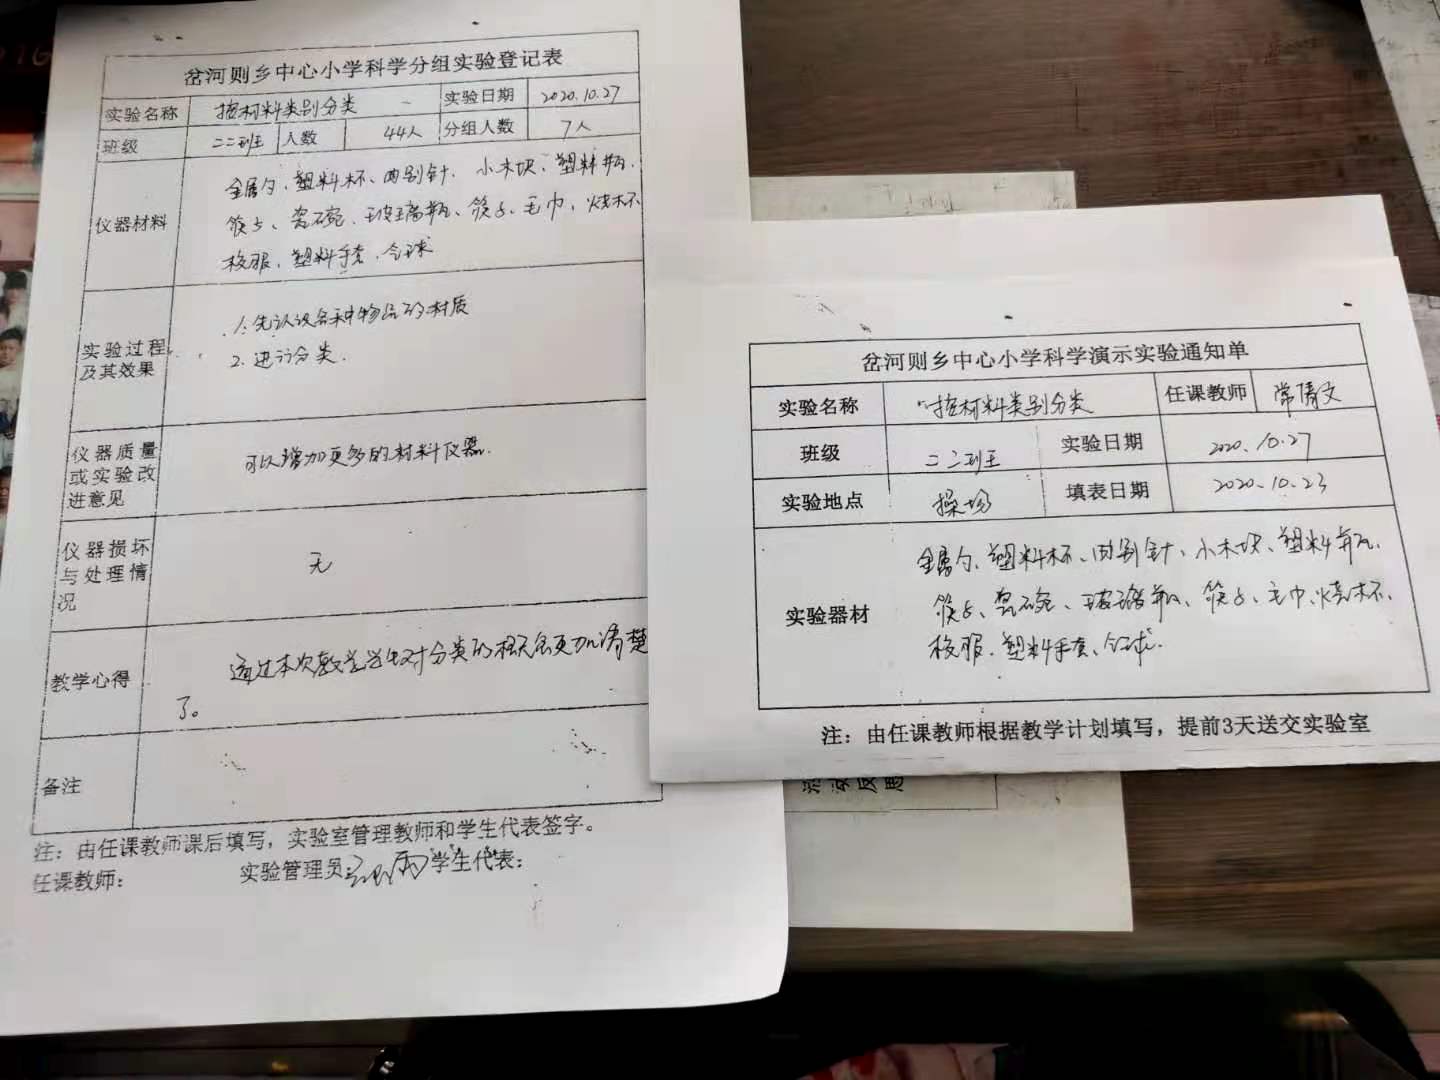 岔河则乡中心小学科学分组实验登记表
实验名称 按材料类别分类 实验日期 2020.10.27
班级 二二班 人数 44人 分组人数 7人
仪器材料
金属勺、塑料杯、回别针、小木块、塑料瓶、
筷子、瓷碗、玻璃瓶、筷子、毛巾、烧杯
校服、塑料手套、气球
实验过程及其效果
1.先认设各种物品的材质
2.进行分类.
仪器质量或实验改进意见
可以增加更多的材料仪器.
仪器损坏与处理情况
无
教学心得
通过本次教学学生对分类的概念更加清楚
了。
备注
注：由任课教师课后填写，实验室管理教师和学生代表签字。
任课教师： 实验管理员 学生代表：
岔河则乡中心小学科学演示实验通知单
实验名称 按材料类别分类 任课教师 常倩文
班级 二二班 实验日期 2020.10.27
实验地点 操场 填表日期 2020.10.23
实验器材
金属勺、塑料杯、回别针、小木块、塑料瓶、
筷子、瓷碗、玻璃瓶、筷子、毛巾、烧杯、
校服、塑料手套、气球.
注：由任课教师根据教学计划填写，提前3天送交实验室